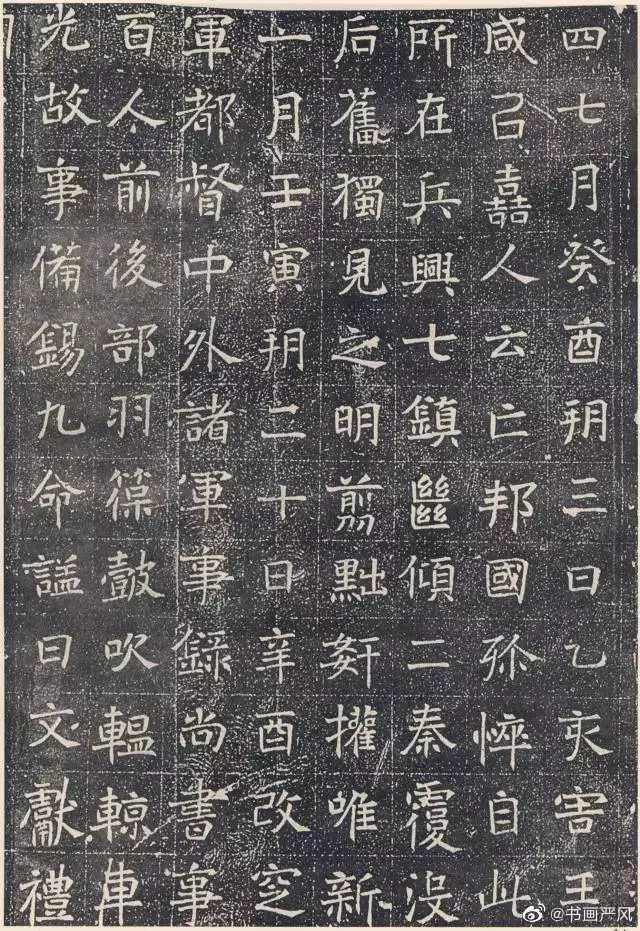 四七月癸酉朔三日乙亥害王
咸召嚞人云亡邦國殄悴自此
所在兵興七鎮㡭傾二秦覆没
后舊獨見之明剪黜奸擢唯新
一月壬寅朔二十日辛酉改窆
軍都督中外諸軍事録尚書事
百人前後部羽葆鼓吹轀輬車
光故事備錫九命謚曰文獻禮
@书画严风